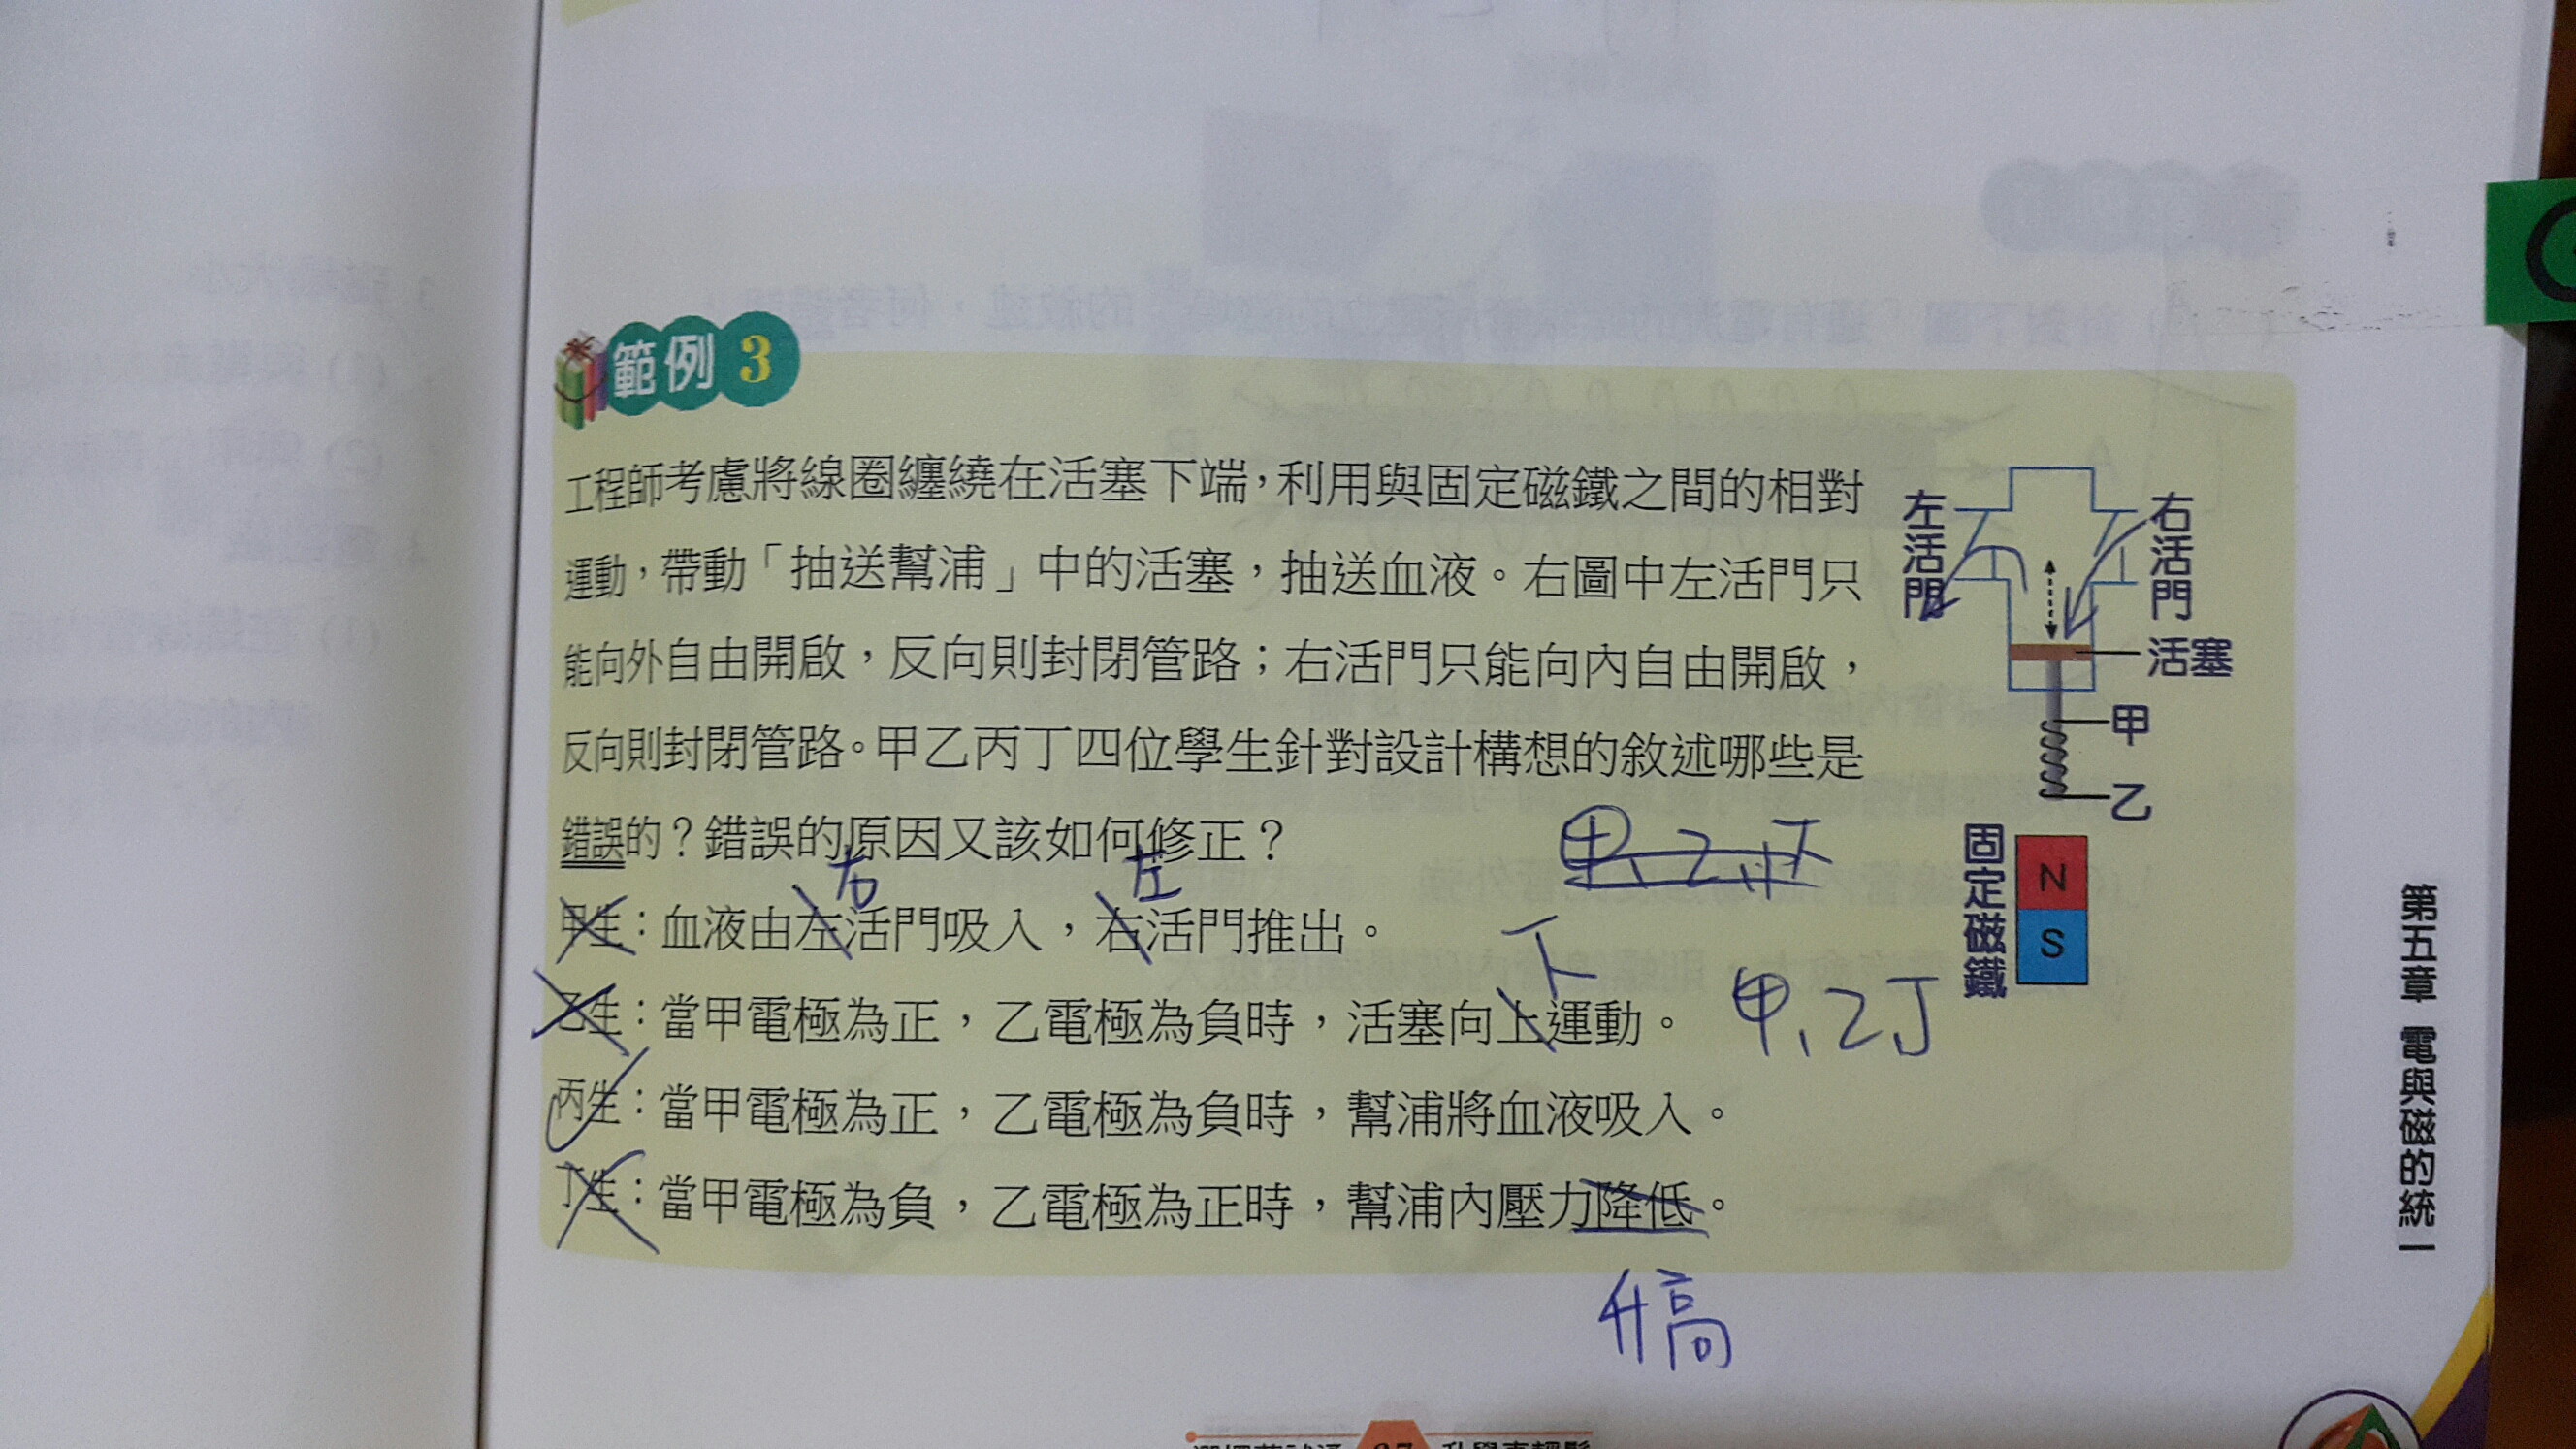 範例 3
工程師考慮將線圈纏繞在活塞下端，利用與固定磁鐵之間的相對
運動，帶動「抽送幫浦」中的活塞，抽送血液。右圖中左活門只
能向外自由開啟，反向則封閉管路；右活門只能向內自由開啟，
反向則封閉管路。甲乙丙丁四位學生針對設計構想的敘述哪些是
錯誤的？錯誤的原因又該如何修正？
右 左
甲生：血液由左活門吸入，右活門推出。
下
乙生：當甲電極為正，乙電極為負時，活塞向上運動。
甲、乙、丁
丙生：當甲電極為正，乙電極為負時，幫浦將血液吸入。
丁生：當甲電極為負，乙電極為正時，幫浦內壓力降低。
升高
左活門
右活門
活塞
甲
乙
固定磁鐵
N
S
第五章 電與磁的統一